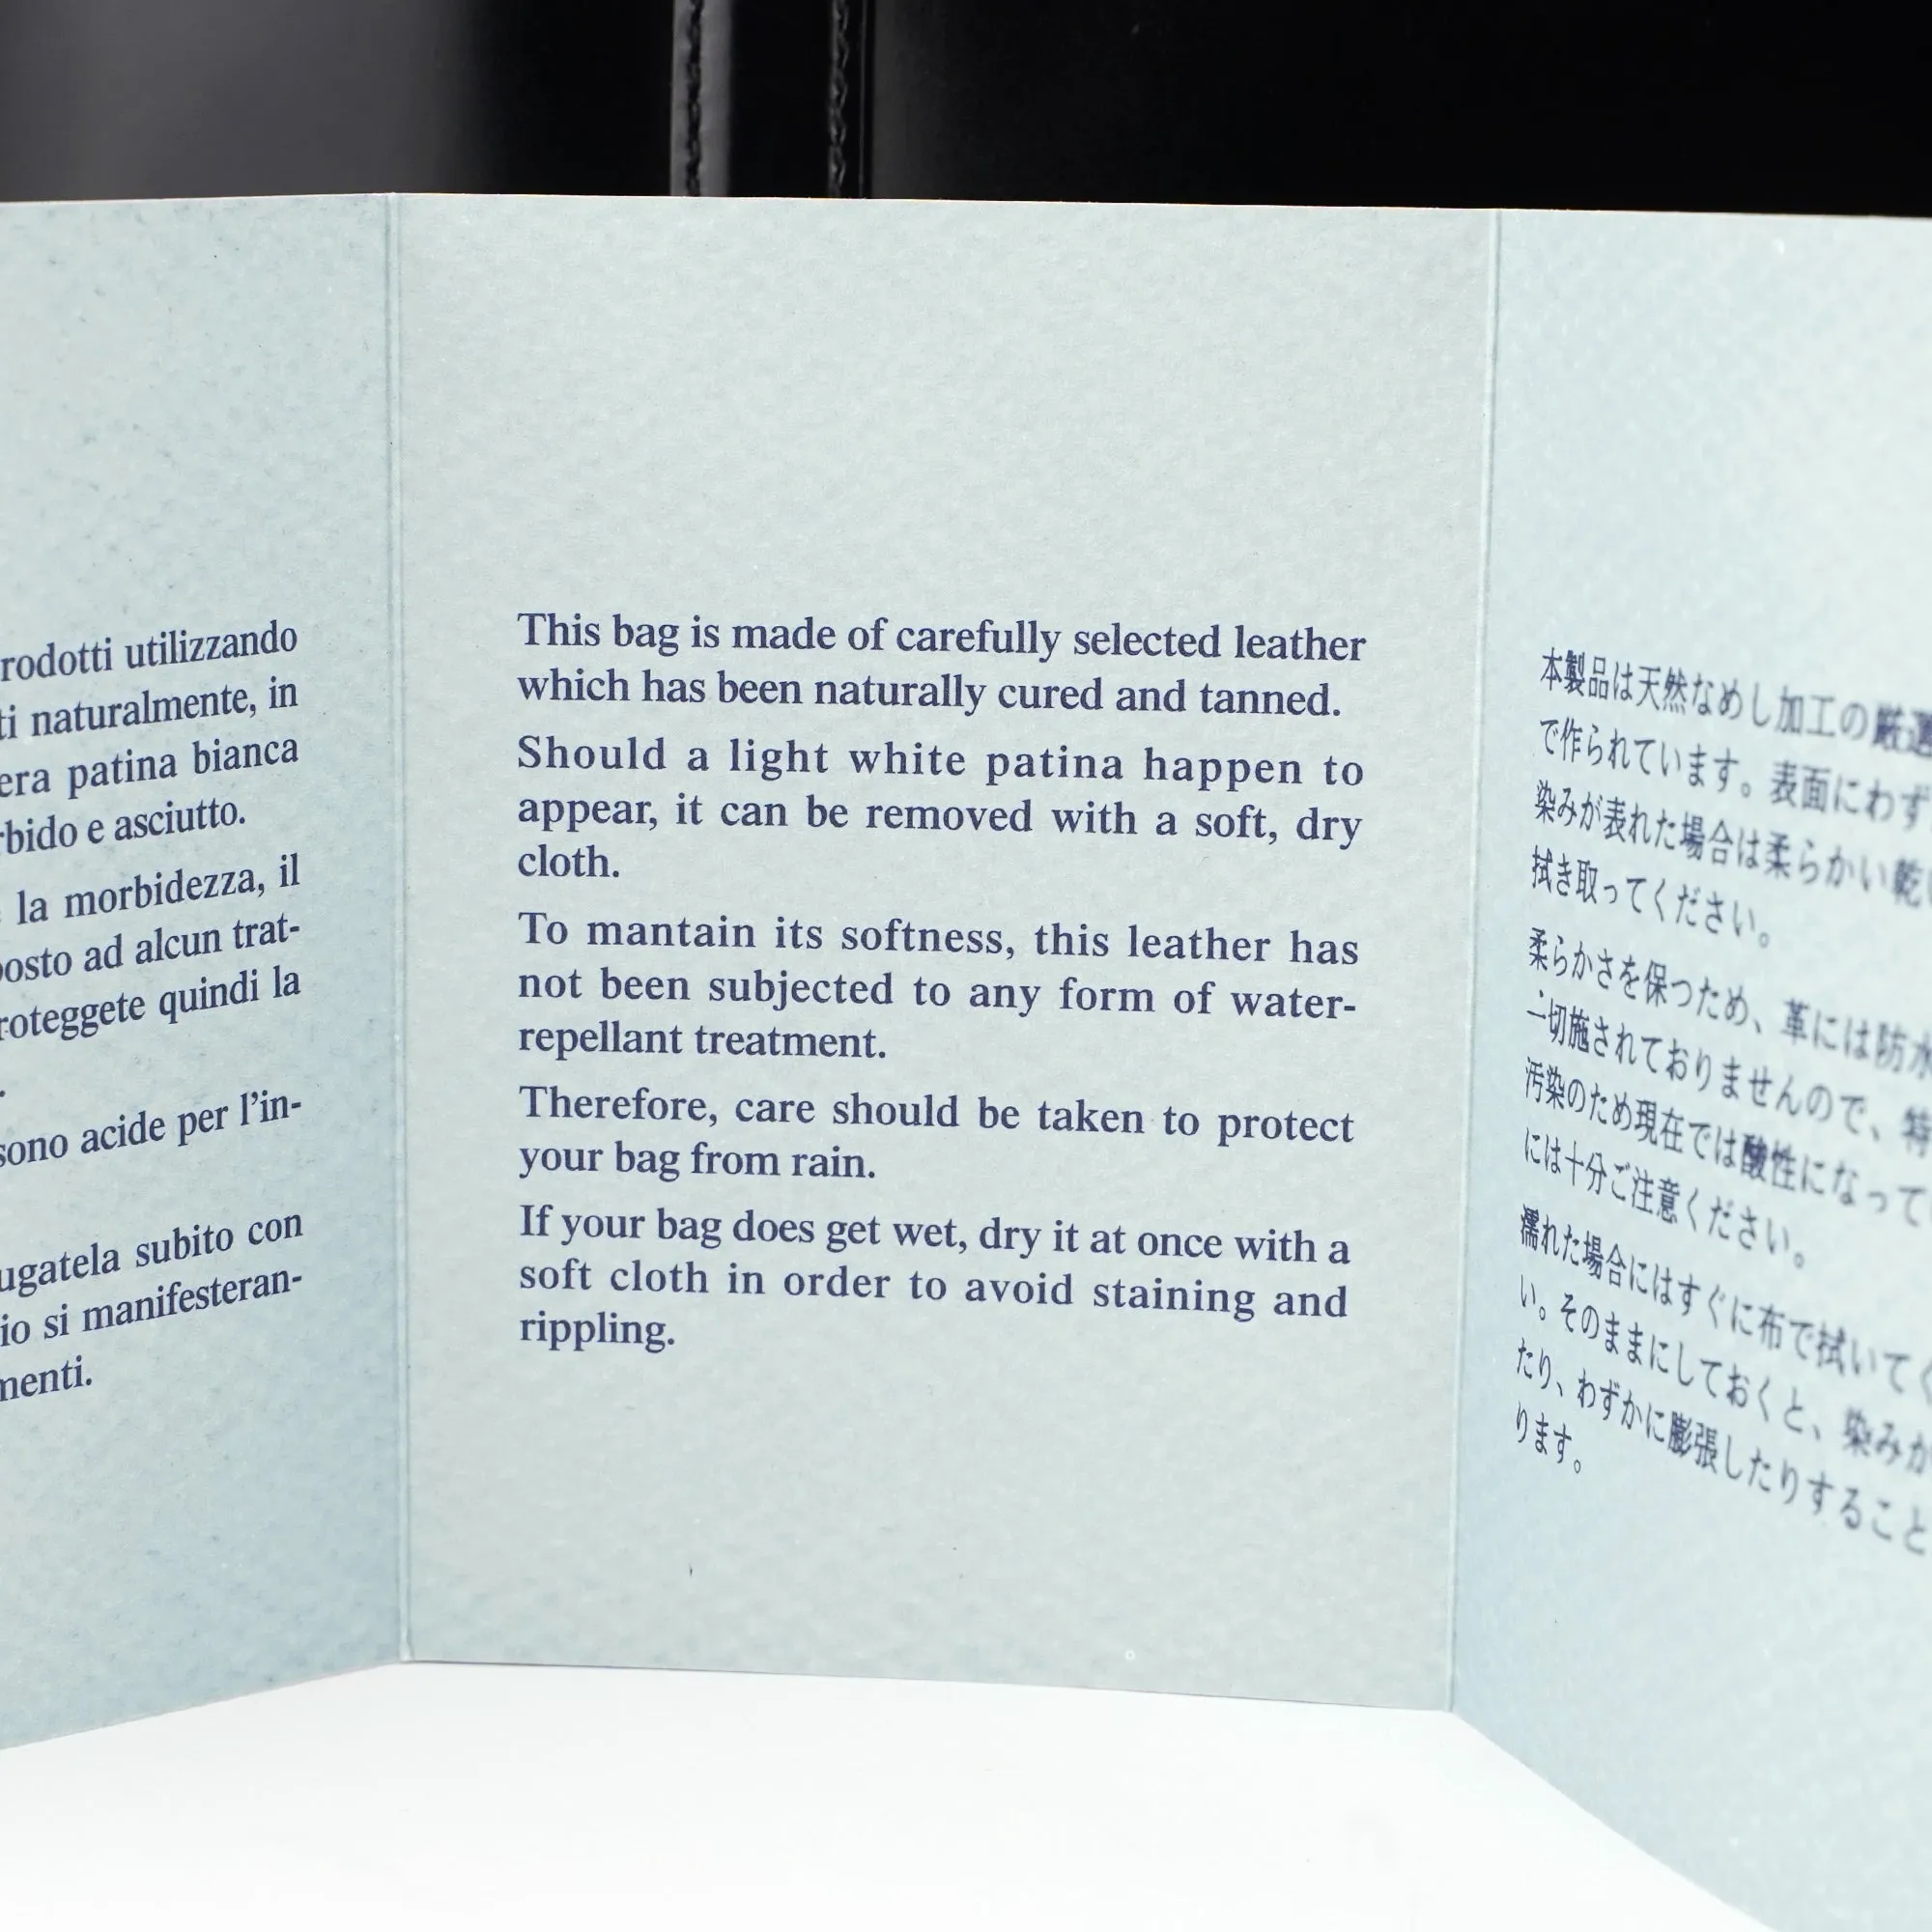 utilizzando
naturalmente, in
patina bianca
e asciutto.
la morbidezza, il
ad alcun trat-
quindi la
sono acide per l'in-
subito con
si manifesteran-
This bag is made of carefully selected leather
which has been naturally cured and tanned.
Should a light white patina happen to
appear, it can be removed with a soft, dry
cloth.
To mantain its softness, this leather has
not been subjected to any form of water-
repellant treatment.
Therefore, care should be taken to protect
your bag from rain.
If your bag does get wet, dry it at once with a
soft cloth in order to avoid staining and
rippling.
本製品は天然なめし加工の厳選
で作られています。表面にわず
染みが表れた場合は柔らかい乾い
拭き取ってください。
柔らかさを保つため、革には防水
一切施されておりませんので、特
汚染のため現在では酸性になって
には十分ご注意ください。
濡れた場合にはすぐに布で拭いてく
い。そのままにしておくと、染みが
たり、わずかに膨張したりすること
ります。